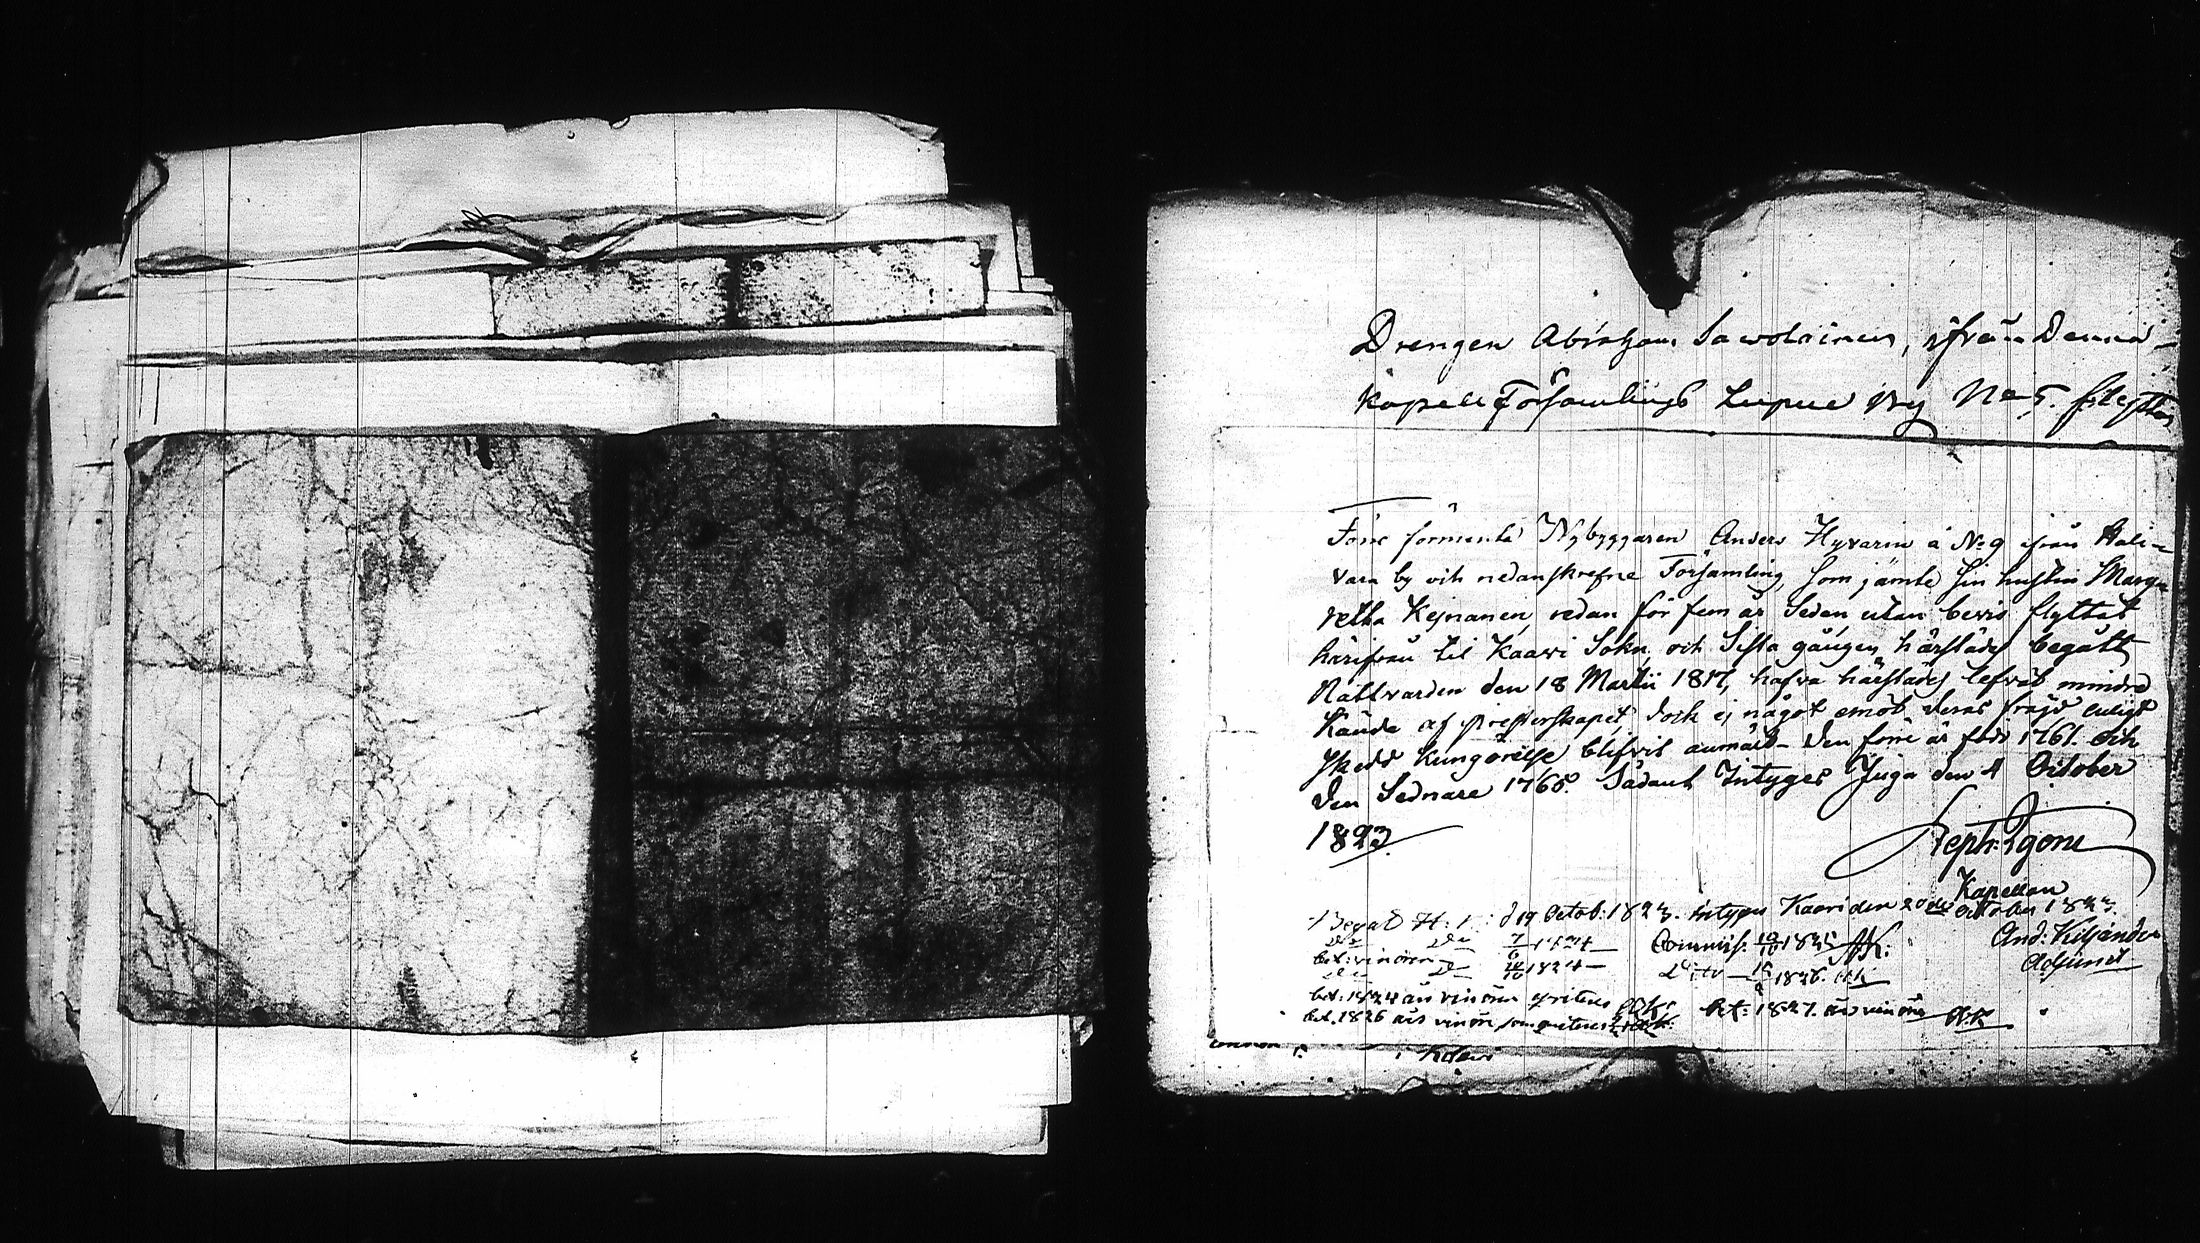 Drengen Abraham Sawolainen, ifrån Denna
Kapell Församlings Lupue by No 5. flyttar
Förre förmente Nybyggaren Anders Hyvarin å No 9 ifrån Hali-
vara by och nedanskrefne Församling, som jämte sin hustru Marga
retha Kejnanen, redan för fem år sedan utan bevis flyttat
härifrån til Kaavi Sokn, och sista gången härstädes begått
Nattvarden den 18 Martii 1817, hafva härstädes lefvat mindre
kände af Presterskapet, dock ej något emot deras fräjd enligt
skedd Kungörelse blifvit anmält. Den förre är född 1761. och
den Sednare 1765. Sådant Intygas Juga den 4 October
1823.
Kapellan
Begat H: d 19 Octob: 1823. intygas Kaavi den 20 October 1823.
And: Kiljander
Adjunct
1824 Commis: 1825
1824 Ditto 1826.
bet: 1824 års vinören
bet. 1826 års vinören som qvitteras bet: 1827. års vinören
i Kaavi